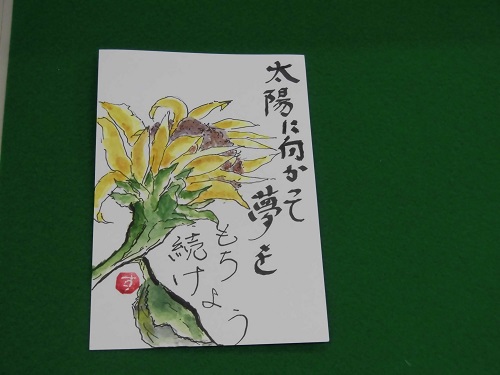 太陽に向かって夢を
もち
続けよう
す